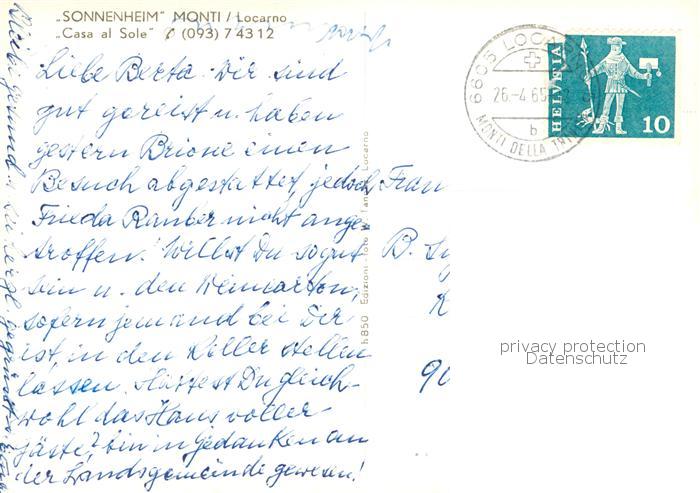 „SONNENHEIM" MONTI / Locarno
„Casa al Sole" ✆ (093) 7 43 12
Liebe Berta. Wir sind
gut gereist u. haben
gestern Brione einen
Besuch abgestattet, jedoch
Frieda Rauber nicht ange-
troffen. Willst Du so gut
sein u. den Weinkarton,
sofern jemand bei Dir
ist, in den Keller stellen
lassen. Hättest Du gleich-
wohl das Haus voller
Gäste? bin in Gedanken an
der Landsgemeinde gewesen!
Bleibe gesund u. sei herzl. gegrüsst
h 850 Edizioni Foto Locarno
6605 LOCARNO
26.-4.65
b
MONTI DELLA
HELVETIA
10
Frau
B.
90
privacy protection
Datenschutz